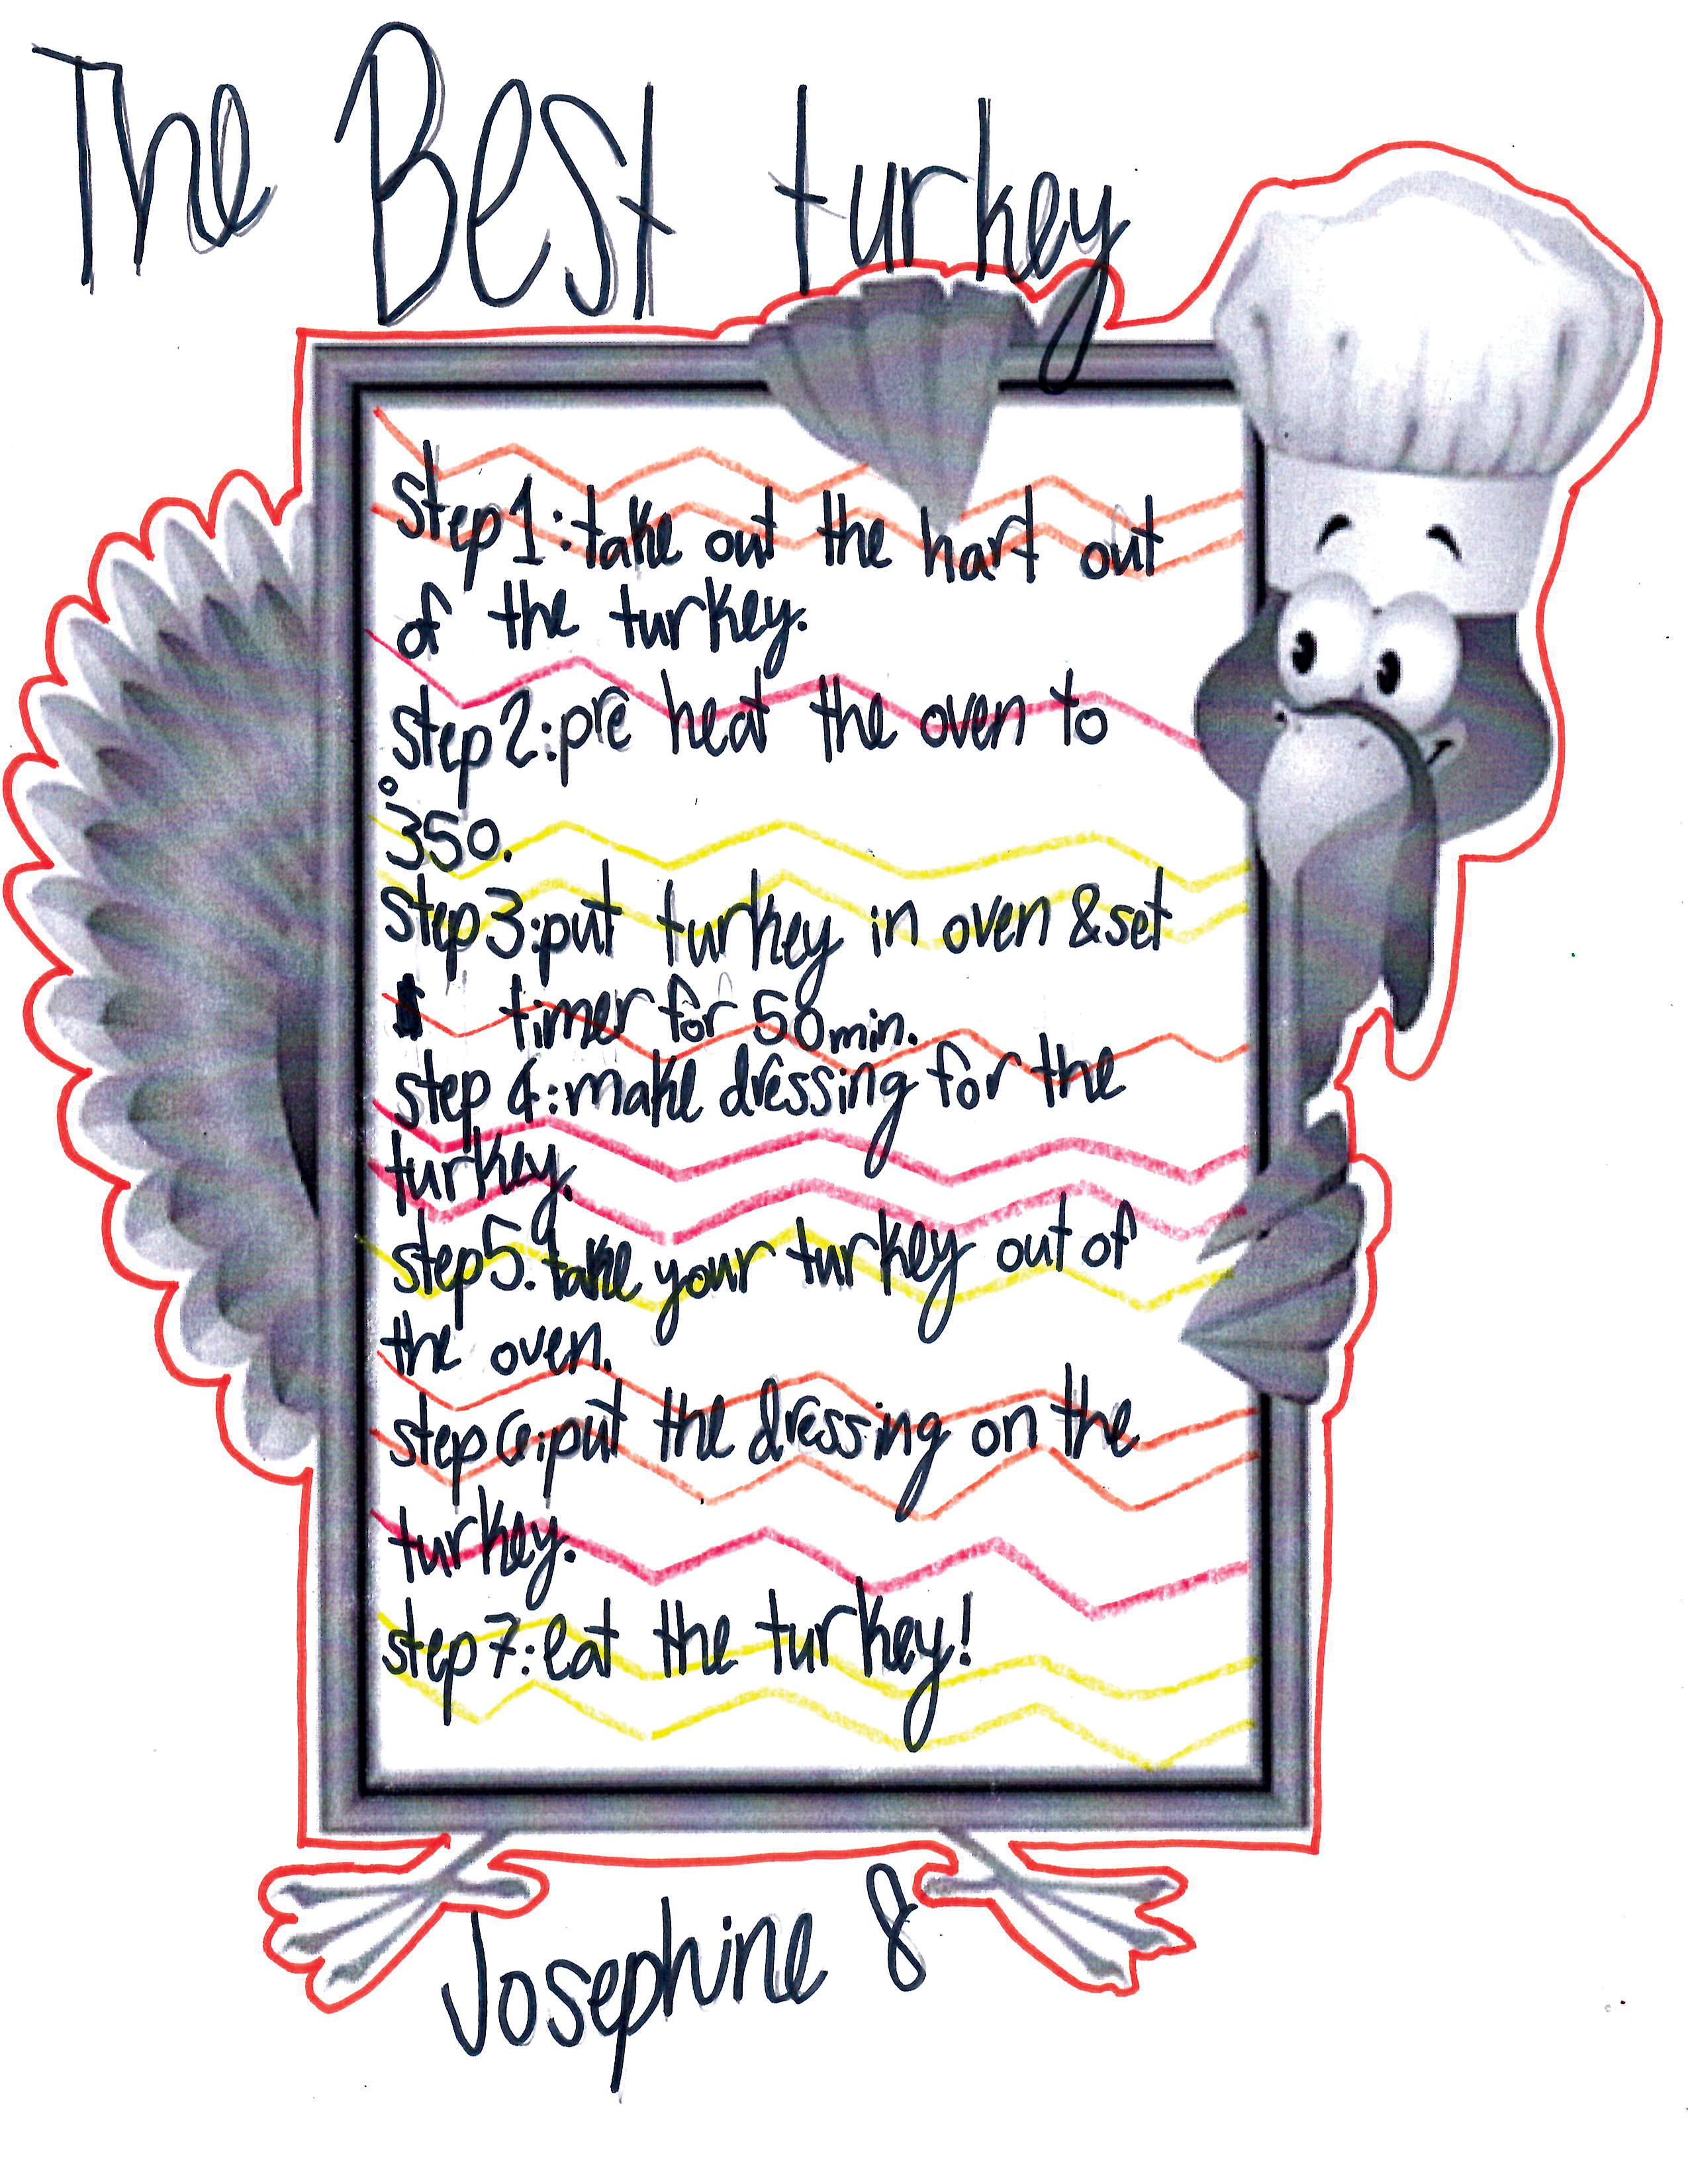 The Best turkey
step 1: take out the hart out
of the turkey.
step 2: pre heat the oven to
°350.
step 3: put turkey in oven & set
timer for 50 min.
step 4: make dressing for the
turkey.
step 5. take your turkey out of
the oven.
step 6: put the dressing on the
turkey.
step 7: eat the turkey!
Josephine 8